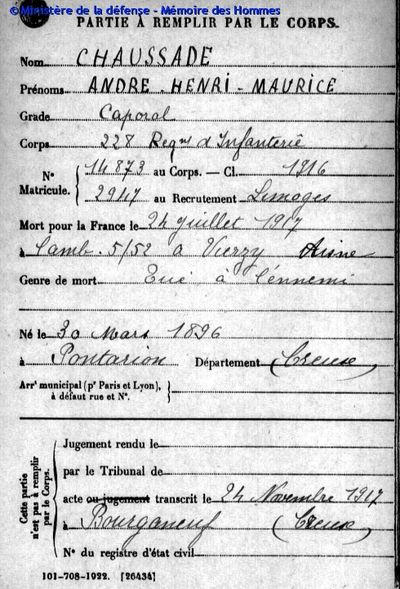 © Ministère de la défense - Mémoire des Hommes
PARTIE À REMPLIR PAR LE CORPS.
Nom CHAUSSADE
Prénoms ANDRE - HENRI - MAURICE
Grade Caporal
Corps 228 Reg^nt d'Infanterie
N° Matricule. { 14873 au Corps. — Cl. 1916
2947 au Recrutement Limoges
Mort pour la France le 24 juillet 1917
à l'amb. 5/52 à Vierzy Aisne
Genre de mort Tué à l'ennemi
Né le 30 Mars 1896
à Pontarion Département Creuse
Arr^t municipal (p^r Paris et Lyon), à défaut rue et N°. }
Cette partie n'est pas à remplir par le Corps.
Jugement rendu le
par le Tribunal de
acte ou jugement transcrit le 24 Novembre 1917
à Bourganeuf (Creuse)
N° du registre d'état civil
101-708-1922. [26434]